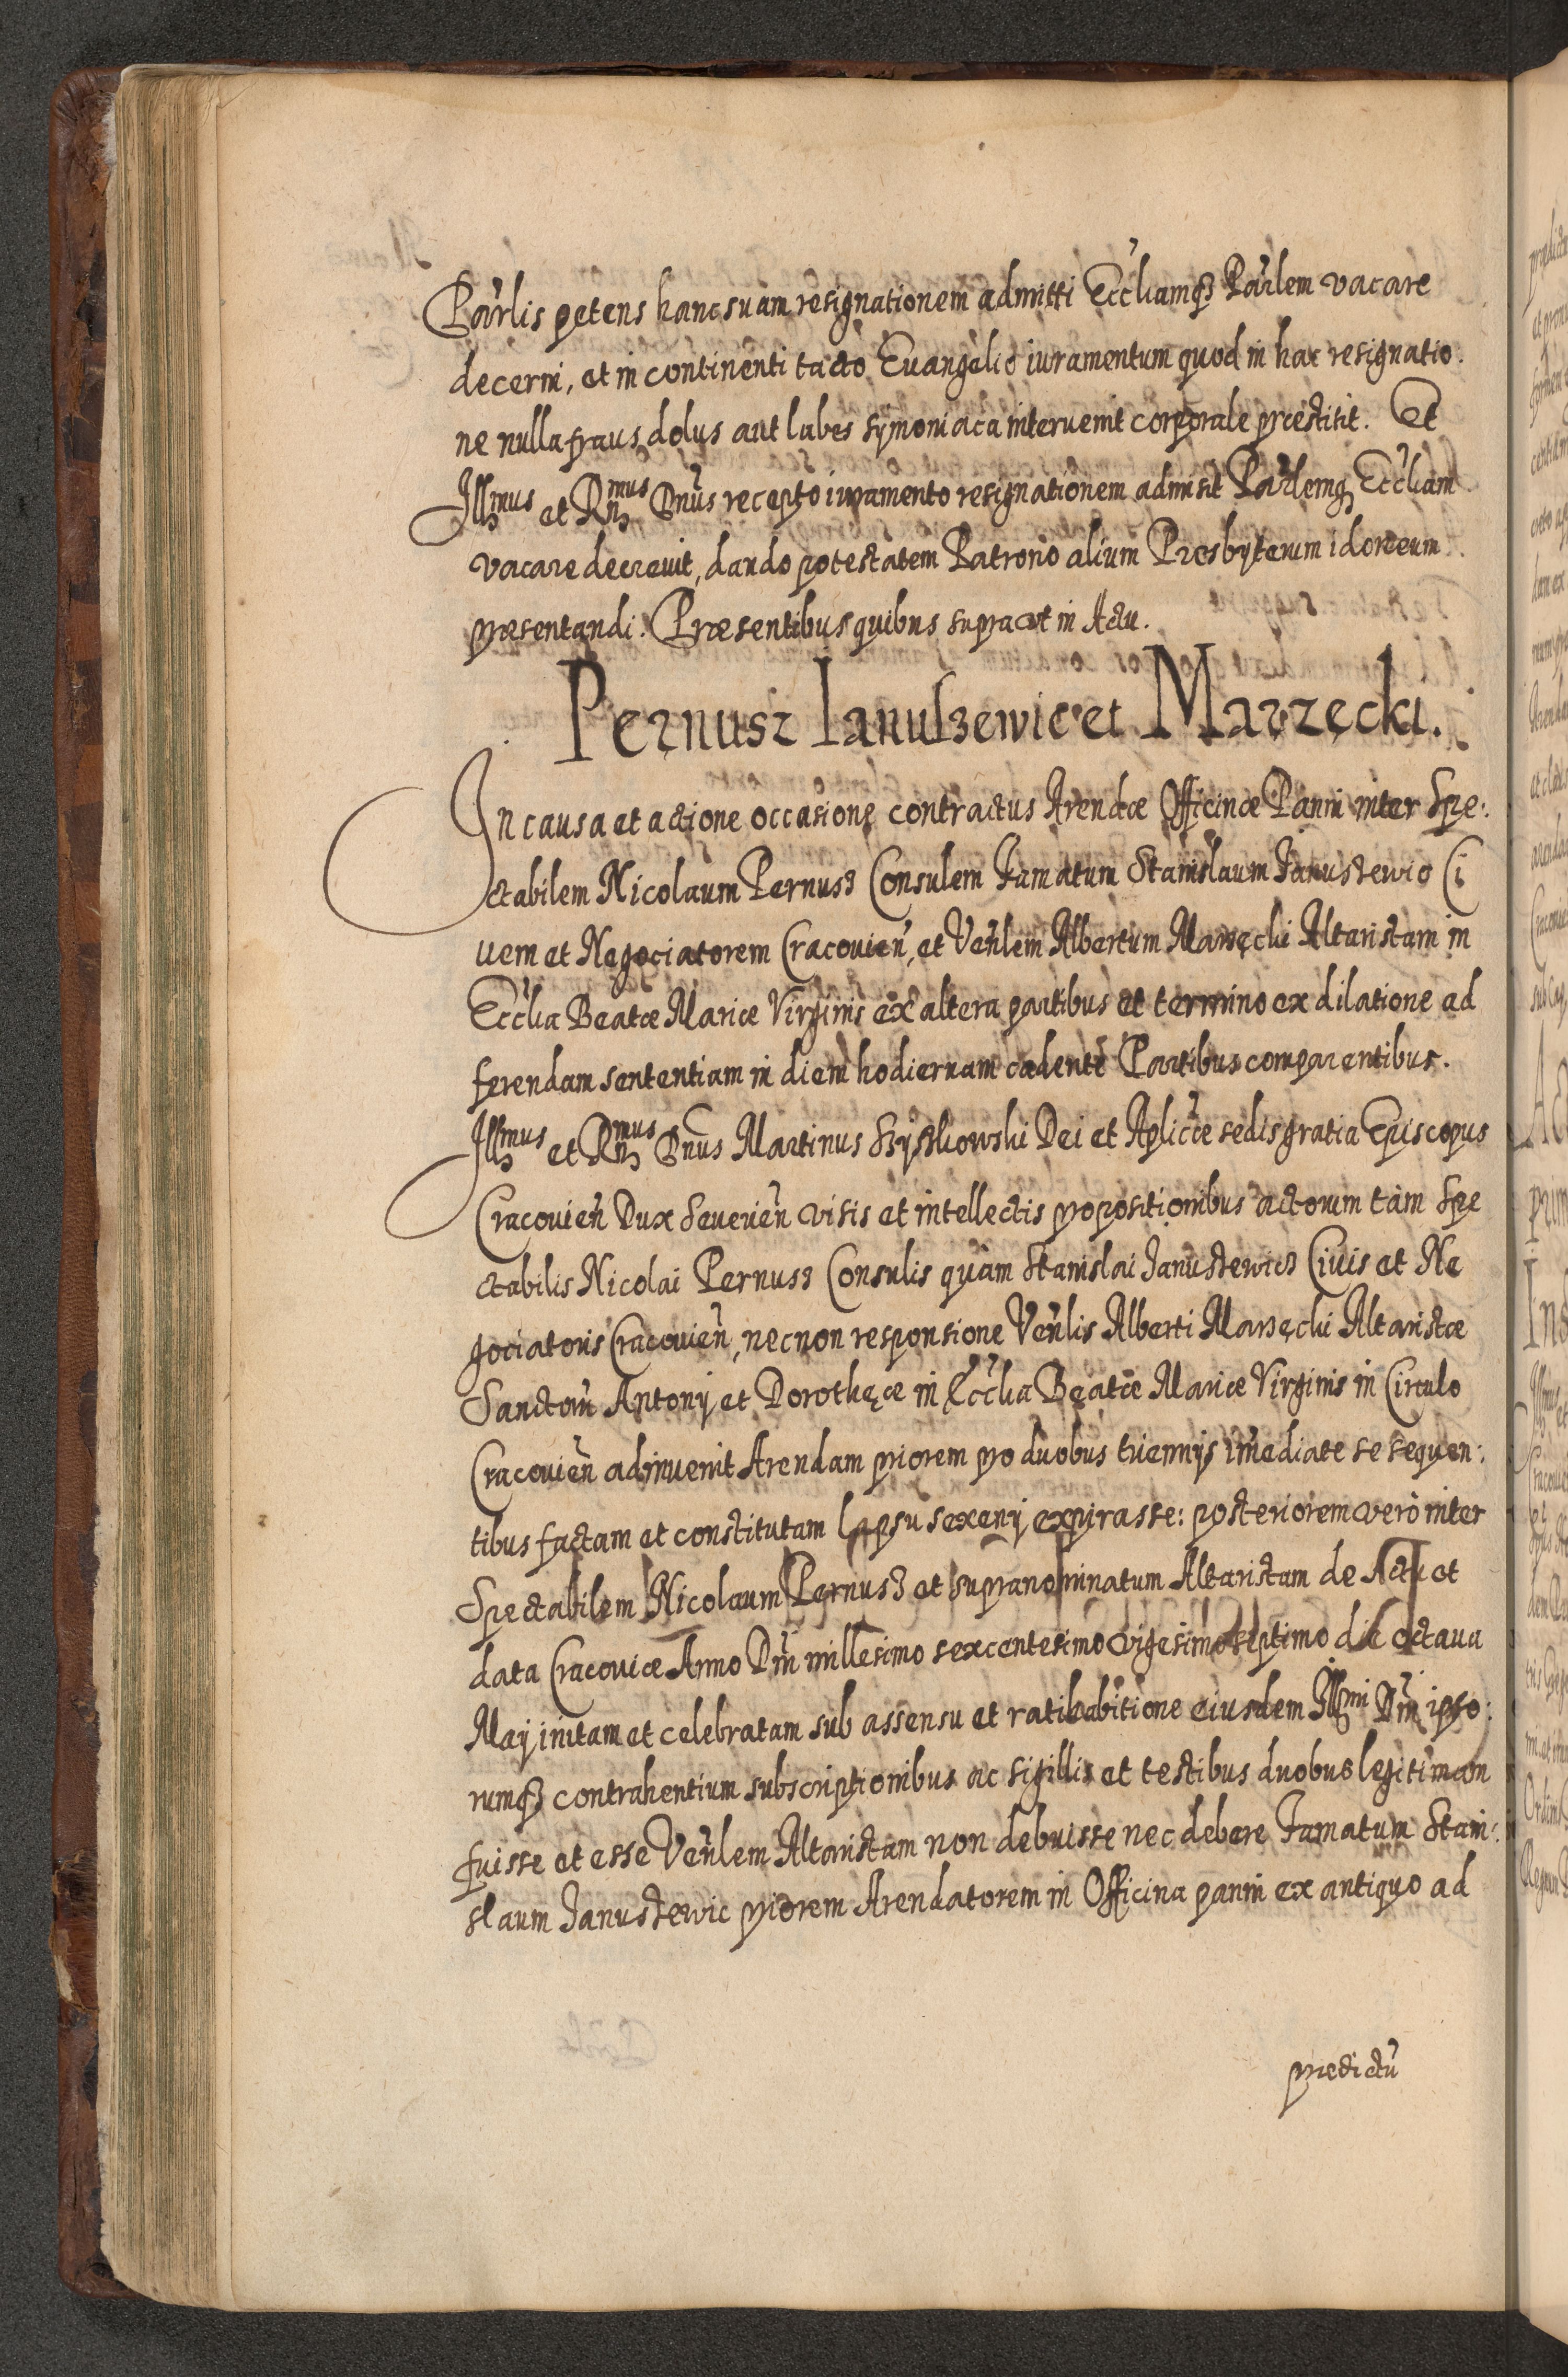 Parlis petens hanc suam resignationem admitti Eccliamq₃ Parlem vacare
decerni, et in continenti tacto Euangelio iuramentum quod in hac resignatio
ne nulla fraus dolus aut labes symoniaca interuenit corporale præstitit. Et
Illmus et Rmus Dnus recepto iuramento resignationem admisit Parlemq₃ Eccliam
vacare decreuit, dando potestatem Patrono alium Presbyterum idoneum
præsentandi. Præsentibus quibus supra et in Actu.
Pernusz Ianuszewic et Marzęcki.
In causa et actione occasione contractus Arendæ Officinæ Panni inter Spe:
ctabilem Nicolaum Pernus₃ Consulem Famatum Stanislaum Januszewic Ci
uem et Negociatorem Cracouien̄, et Ven̄lem Albertum Marzęcki Altaristam in
Ecclia Beatæ Mariæ Virginis ex altera partibus et termino ex dilatione ad
ferendam sententiam in diem hodiernam cadente Partibus comparentibus.
Illmus et Rmus Dnus Martinus Szyszkowski Dei et Aplicæ sedis gratia Episcopus
Cracouien̄ Dux Seuerien̄ visis et intellectis propositionibus actorum tàm Spe
ctabilis Nicolai Pernus₃ Consulis quàm Stanislai Januszewic₃ Ciuis et Ne
gociatoris Cracouien̄, necnon responsione Ven̄lis Alberti Marzęcki Altaristæ
Sanctorū Antonij et Dorothęæ in Ecclia Beatæ Mariæ Virginis in Circulo
Cracouien̄ adinuenit Arendam priorem pro duobus triennijs imediate se sequen:
tibus factam et constitutam lapsu sexenij expirasse: posteriorem verò inter
Spectabilem Nicolaum Pernus₃ et supranominatum Altaristam de Actu et
data Cracouiæ Anno Dn̄i millesimo sexcentesimo vigesimo septimo die octaua
Maij initam et celebratam sub assensu et ratihabitione eiusdem Illmi Dn̄i ipso:
rumq₃ contrahentium subscriptionibus ac sigillis et testibus duobus legitimam
fuisse et esse Ven̄lem Altaristam non debuisse nec debere Famatum Stani:
slaum Januszewic priorem Arendatorem in Officina panni ex antiquo ad
predictū